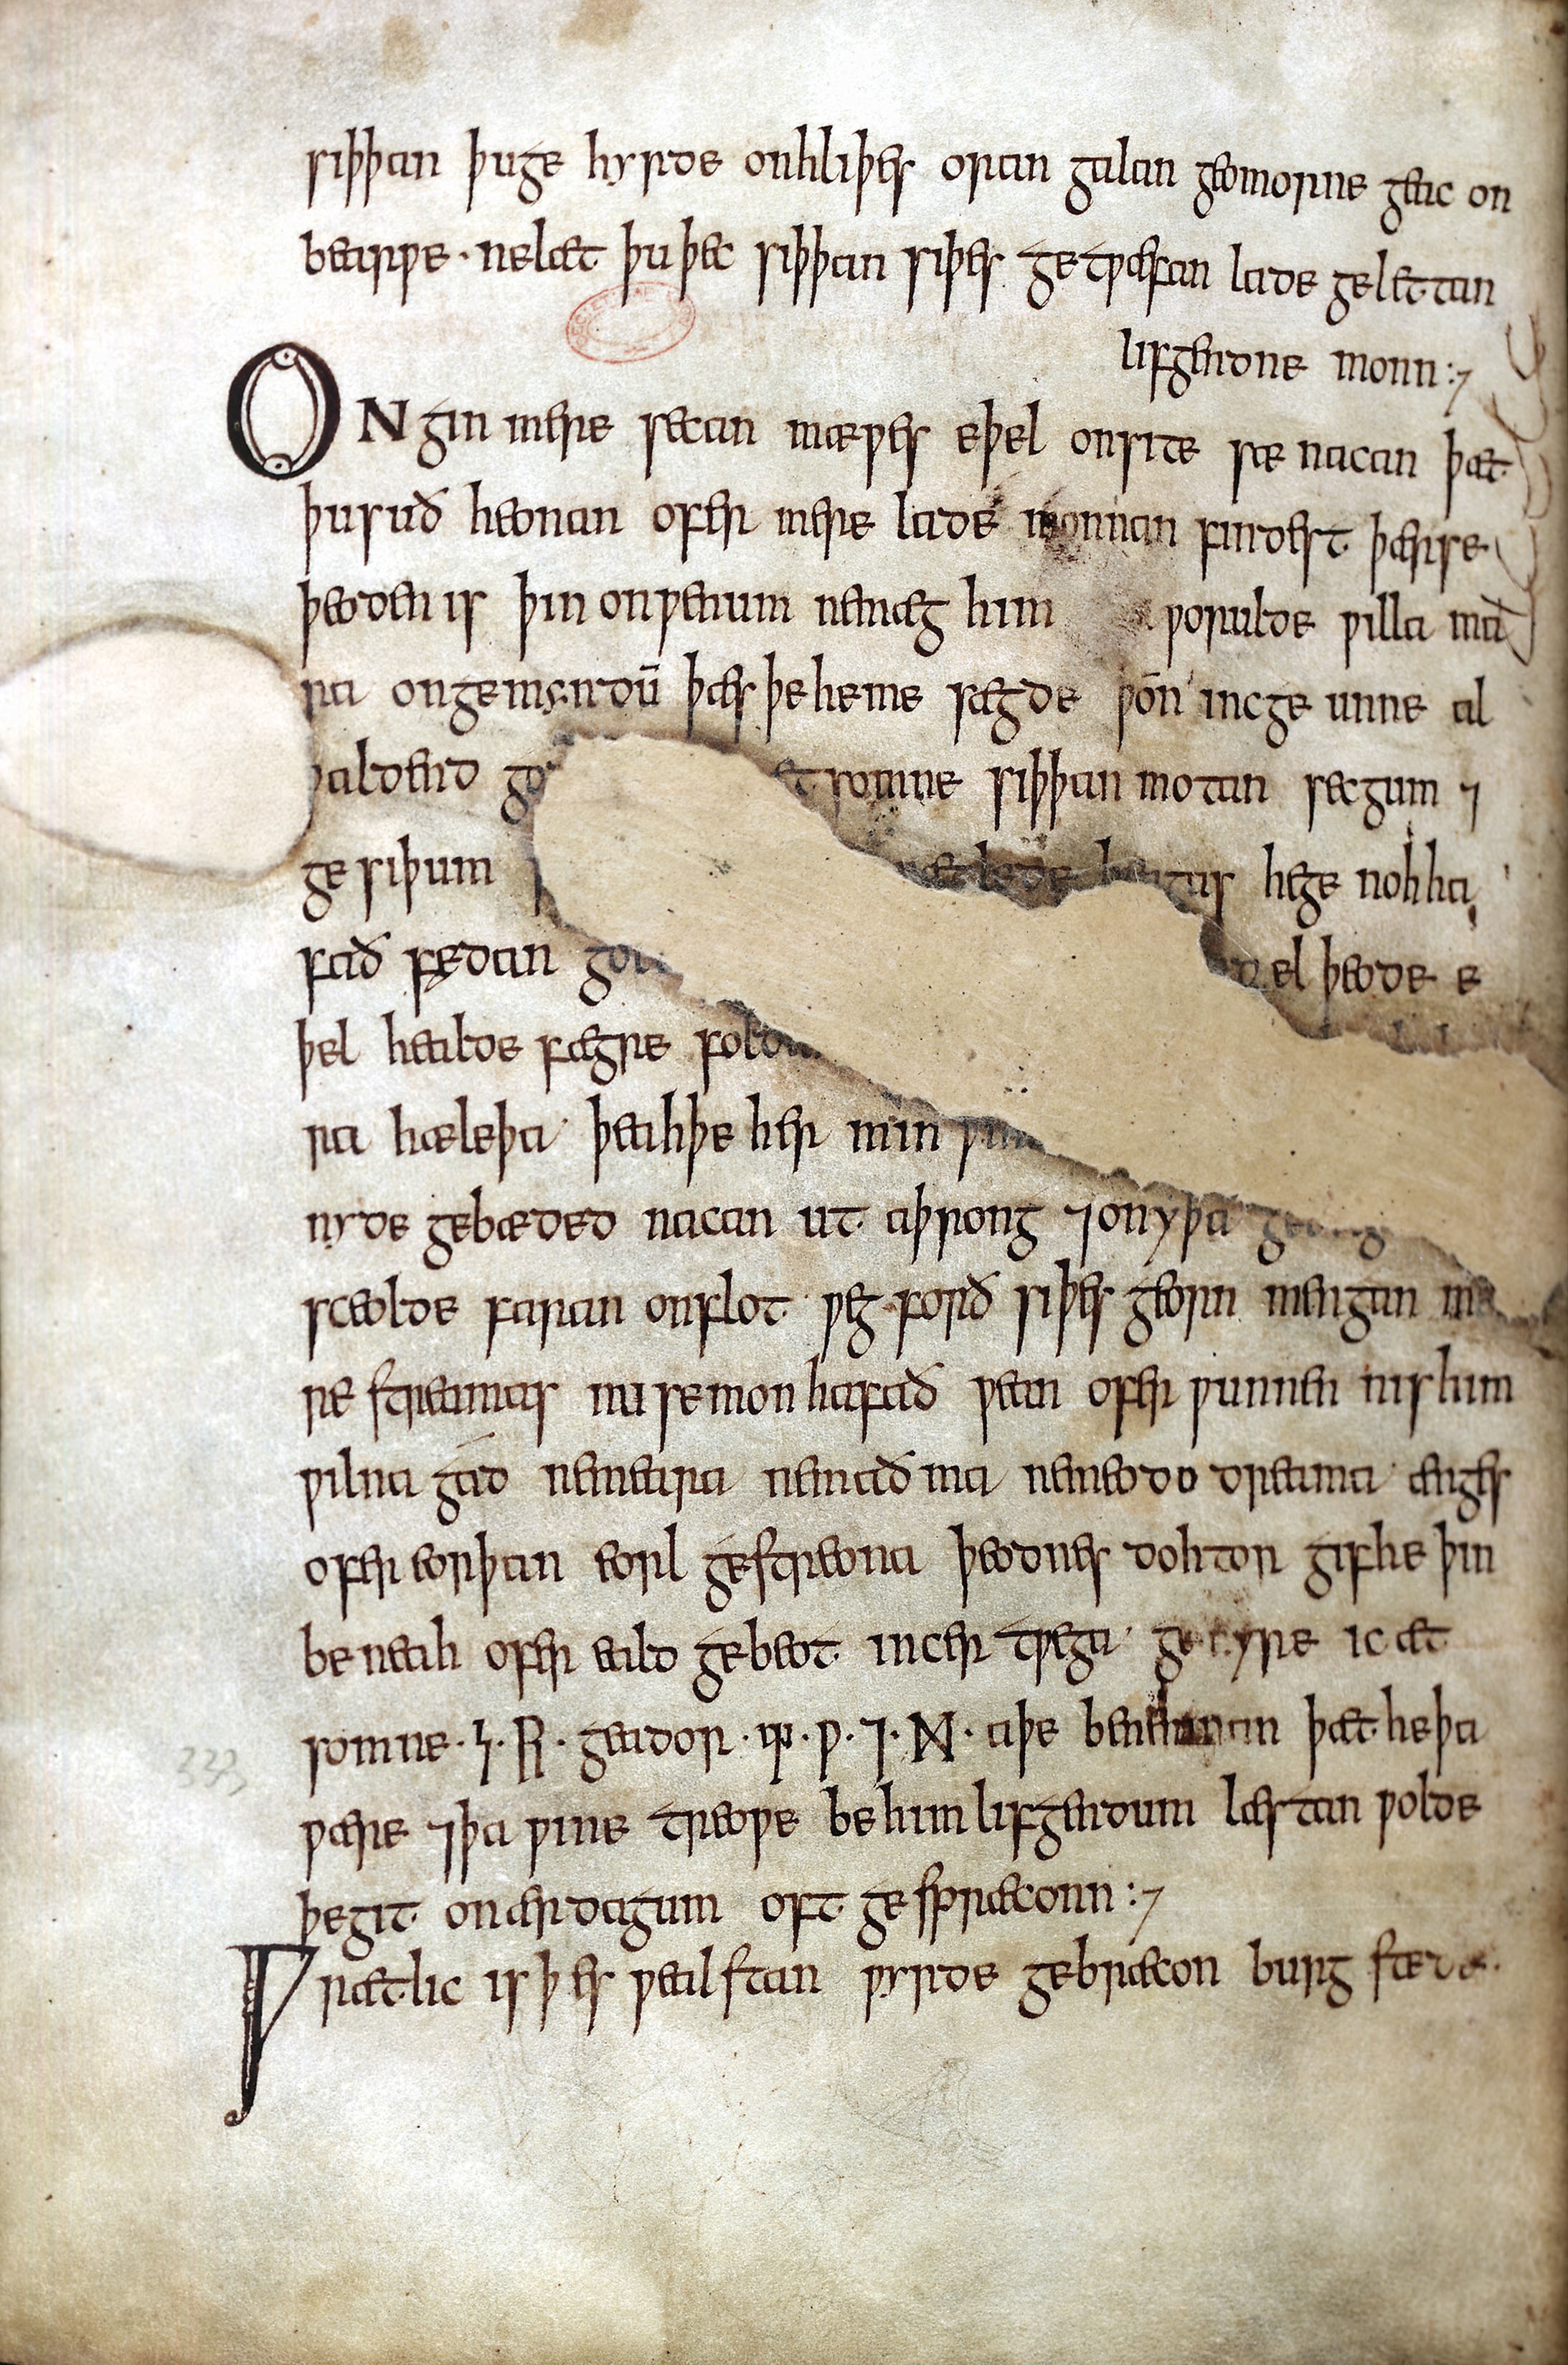 siþþan þuge hyrde onhliþes oran galan geomorne geac on
bearƿe · nelæt þu þec siþþan siþes getƿæfan lade gelettan
lifgendne monn :⁊
ONgin mere secan mæƿes eþel onsite sæ nacan þæt
þusuð heonan ofer mere lade monnan findest þærse
þeoden is þin onƿenum nemæg him ƿorulde ƿilla mā
ra ongemyndū þæs þe heme sægde þoñ incge unne al
ƿaldend god ætsomne siþþan motan secgum ⁊
ge siþum hege nohha
fað fędan gol el þeode e
þel healde fægre fold
ra hæleþa · þeahþe her min ƿin
nyde gebæded nacan ut aþrong ⁊onyþa geong
sceolde faran onflot ƿeg · forð siþes georn mengan me
re streamas nu semon hafað ƿean ofer ƿunnen nis him
ƿilna gád nemeara nemaðma nemeodo dreama · ænges
ofer eorþan eorl gestreona þeodnes dohtor gif he þin
beneah ofer eald gebeot incer tƿega · ge yre ic æt
somne · ᛋ · ᚱ · geador · ᛠ · ᚹ · ⁊ · ᛗ · aþe benemnan þæt he þa
ƿære ⁊þa ƿine treoƿe be him lifgendum læstan ƿolde
þegit · onærdagum oft gespræconn :⁊
Ƿrætlic is þes ƿealstan ƿyrde gebræcon burg stede ·